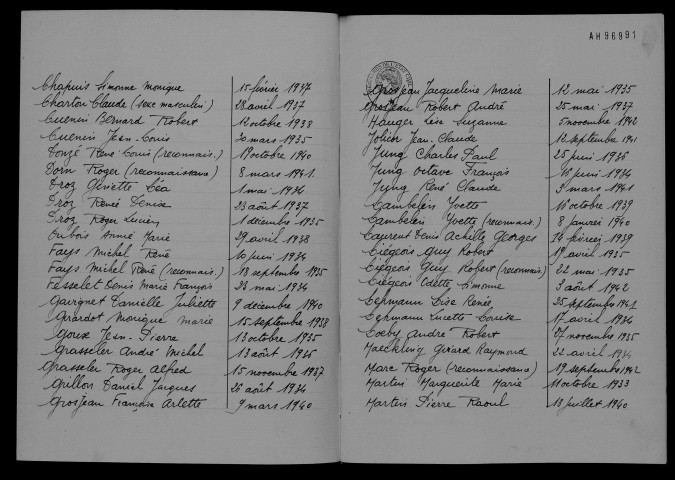 Chapuis Simonne Monique 15 février 1937
Charton Claude (sexe masculin) 28 avril 1937
Cuenin Bernard Robert 12 octobre 1938
Cuenin Jean-Louis 30 mars 1935
Donzé René Louis (reconnais.) 19 octobre 1940
Dorn Roger (reconnaissance) 8 mars 1941
Droz Ginette Léa 1 mai 1934
Droz Renée Denise 23 août 1937
Droz Roger Lucien 1 décembre 1935
Dubois Anne Marie 29 avril 1938
Fays Michel René 10 juin 1934
Fays Michel René (reconnais.) 18 septembre 1935
Fesselet Denis Marie François 23 mai 1934
Gavignet Danielle Juliette 9 décembre 1940
Girardot Monique Marie 15 septembre 1938
Goux Jean-Pierre 13 octobre 1935
Grasseler André Michel 13 août 1936
Grasseler Roger Alfred 15 novembre 1937
Grillon Daniel Jacques 26 août 1934
Grosjean Françoise Arlette 9 mars 1940
AH96991
Grosjean Jacqueline Marie 12 mai 1935
Grosjean Robert André 25 mai 1937
Hauger Lise Suzanne 5 novembre 1942
Joliot Jean-Claude 12 septembre 1941
Jung Charles Paul 25 juin 1936
Jung Octave François 16 juin 1934
Jung René Claude 3 mars 1941
Lambelin Yvette 16 octobre 1939
Lambelin Yvette (reconnais.) 8 janvier 1940
Laurent Denis Achille Georges 14 février 1939
Liégeois Guy Robert 19 avril 1935
Liégeois Guy Robert (reconnais.) 22 mai 1935
Liégeois Odette Simonne 3 août 1942
Liermann Lise Renée 25 septembre 1941
Liermann Lucette Louise 17 avril 1934
Loeby André Robert 07 novembre 1935
Maeckling Gérard Raymond 22 avril 1934
Marc Roger (reconnaissance) 19 septembre 1942
Martin Marguerite Marie 11 octobre 1933
Martin Pierre Raoul 13 juillet 1940